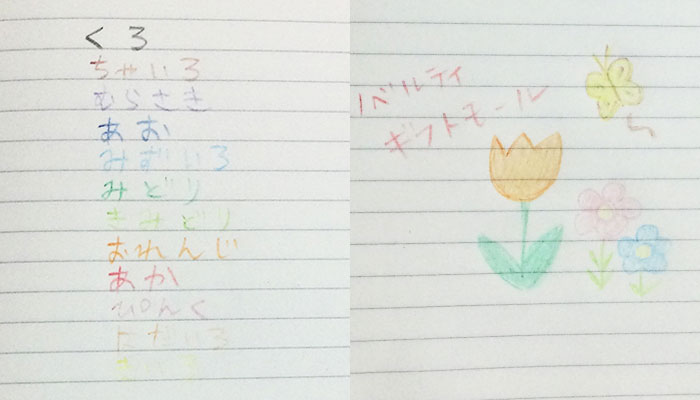 くろ
ちゃいろ
むらさき
あお
みずいろ
みどり
きみどり
おれんじ
あか
ぴんく
はだいろ
きいろ
ノベルティ
ギフトモール